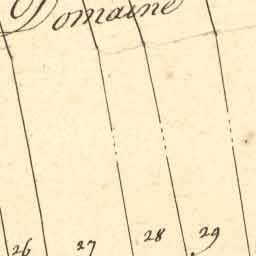 Domaine
26 27 28 29